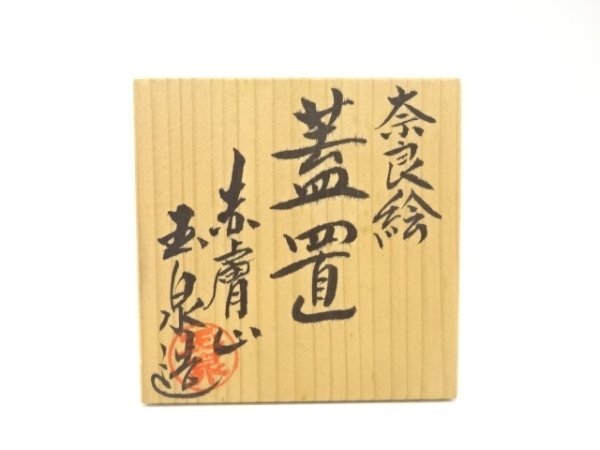 奈良絵
蓋置
赤膚山
玉泉造
玉泉